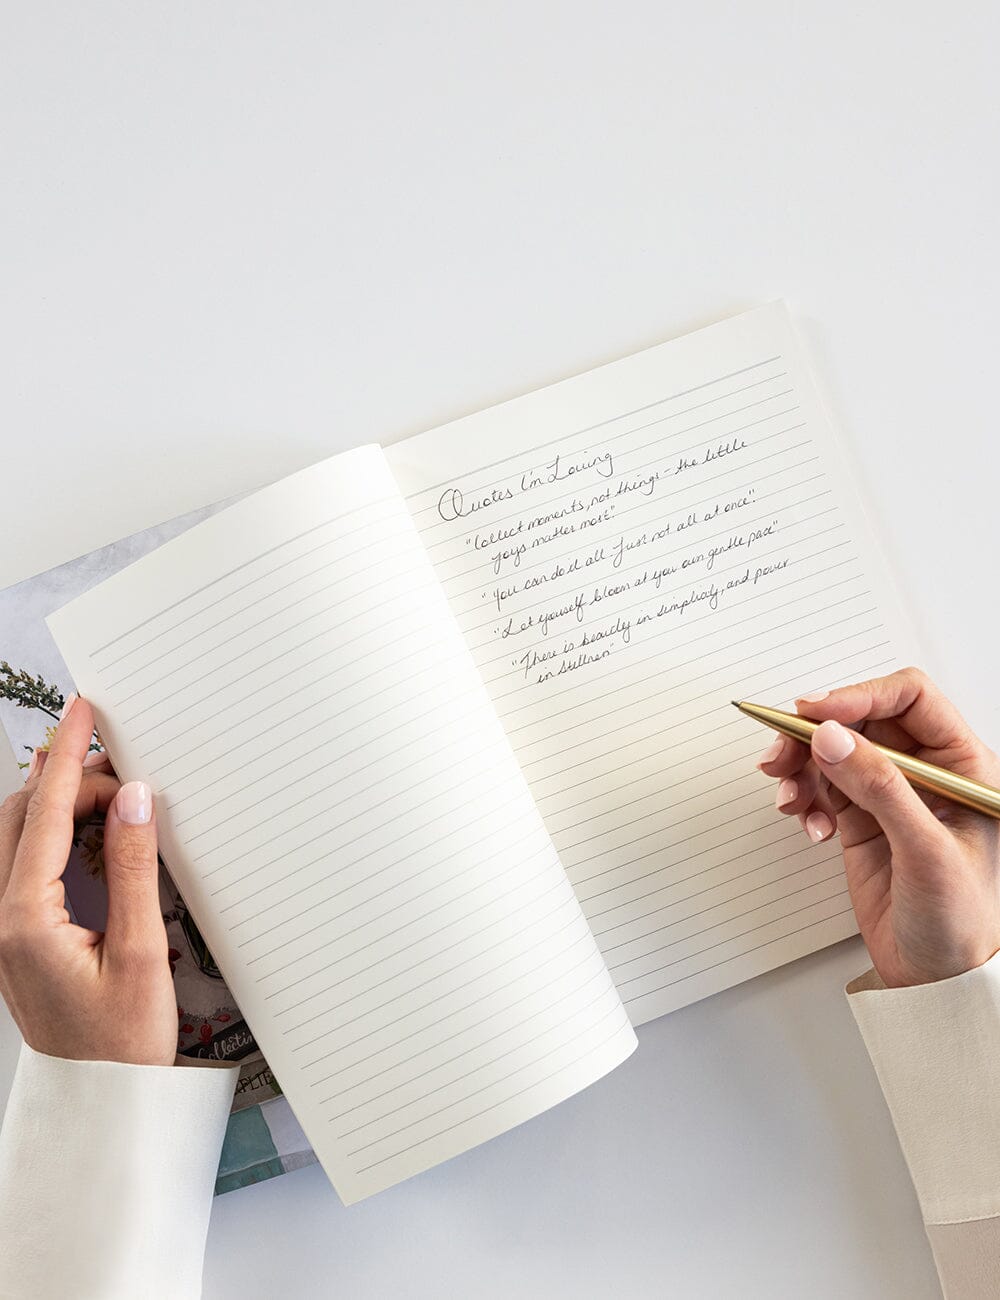 Quotes I'm Loving
"Collect moments, not things - the little
joys matter most."
"You can do it all. Just not all at once".
"Let yourself bloom at you own gentle pace."
"There is beauty in simplicity, and power
in stillness"
Collectin
PLIE